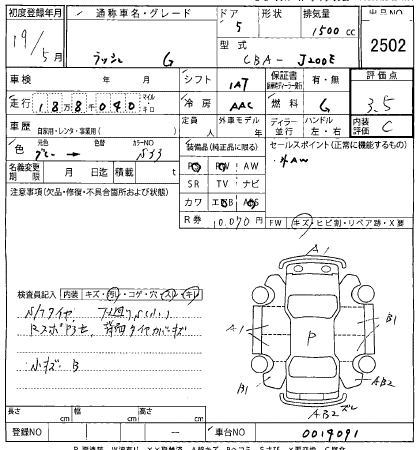 初度登録年月 通称車名・グレード ドア 形状 排気量 出品NO
19/5月 ラッシュ G 5 1500 CC 2502
型式 CBA-J200E
車検 年 月 シフト IAT 保証書 有・無 評価点
走行 188040 マイル・キロ 冷房 AAC 燃料 G 3.5
車歴 自家用・レンタ・事業用( ) 定員 人 外車モデル 年 ディーラー 並行 ハンドル 左・右 内装 C
色 元色 色替 カラーNO グレー S33 装備品(純正品に限る) セールスポイント(正常に機能するもの)
名義変更期限 月 日迄 積載 t PS PW AW 社外AW
注意事項(欠品・修復・不具合箇所および状態) SR TV ナビ
カワ エアB ABS
R券 10.070円 FW キズ・ヒビ割・リペア跡・X要
検査員記入 内装 キズ・汚レ・コゲ・穴・スレ・キレ
小キズ B
A1
A1 P B1
B1 AB2
AB2
長さ cm 幅 cm 高さ cm
登録NO 車台NO 0019091